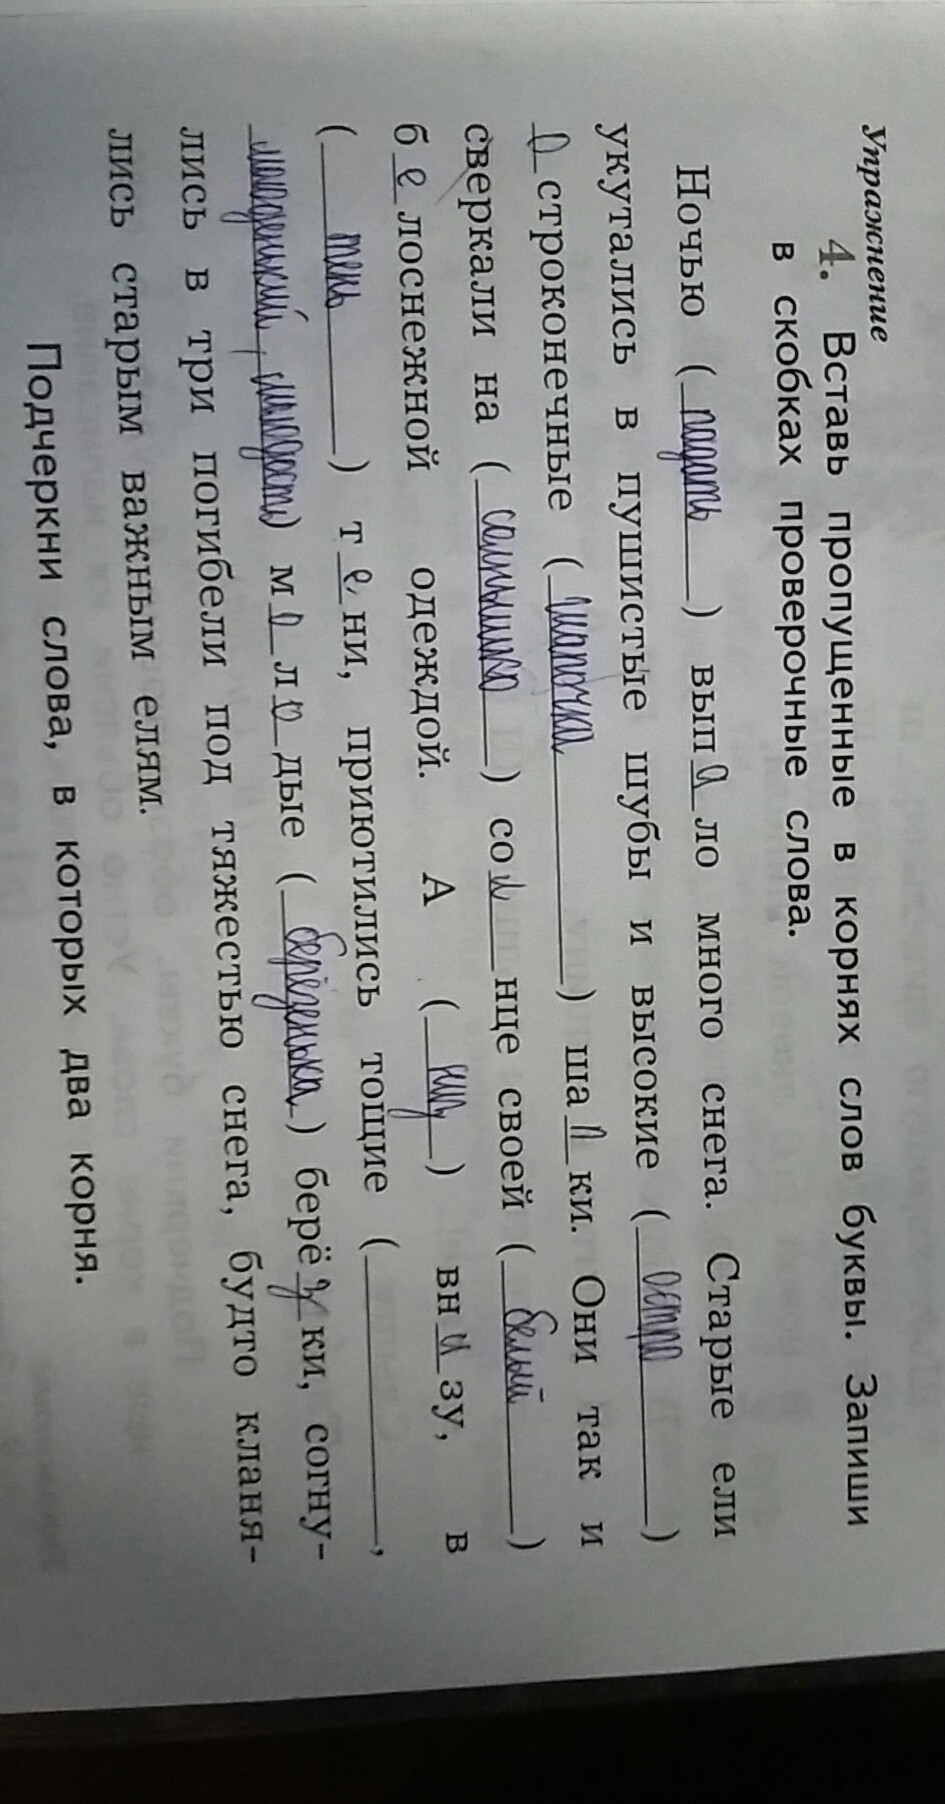 Упражнение
4. Вставь пропущенные в корнях слов буквы. Запиши
в скобках проверочные слова.
Ночью (падать) вып а ло много снега. Старые ели
укутались в пушистые шубы и высокие (остро)
о строконечные (шапочка) ша п ки. Они так и
сверкали на (солнышко) со л нце своей (белый)
б е лоснежной одеждой. А (низ) вн и зу, в
(тень) т е ни, приютились тощие (,
молоденький, молодость) м о л о дые (берёзонька) берё з ки, согну-
лись в три погибели под тяжестью снега, будто кланя-
лись старым важным елям.
Подчеркни слова, в которых два корня.